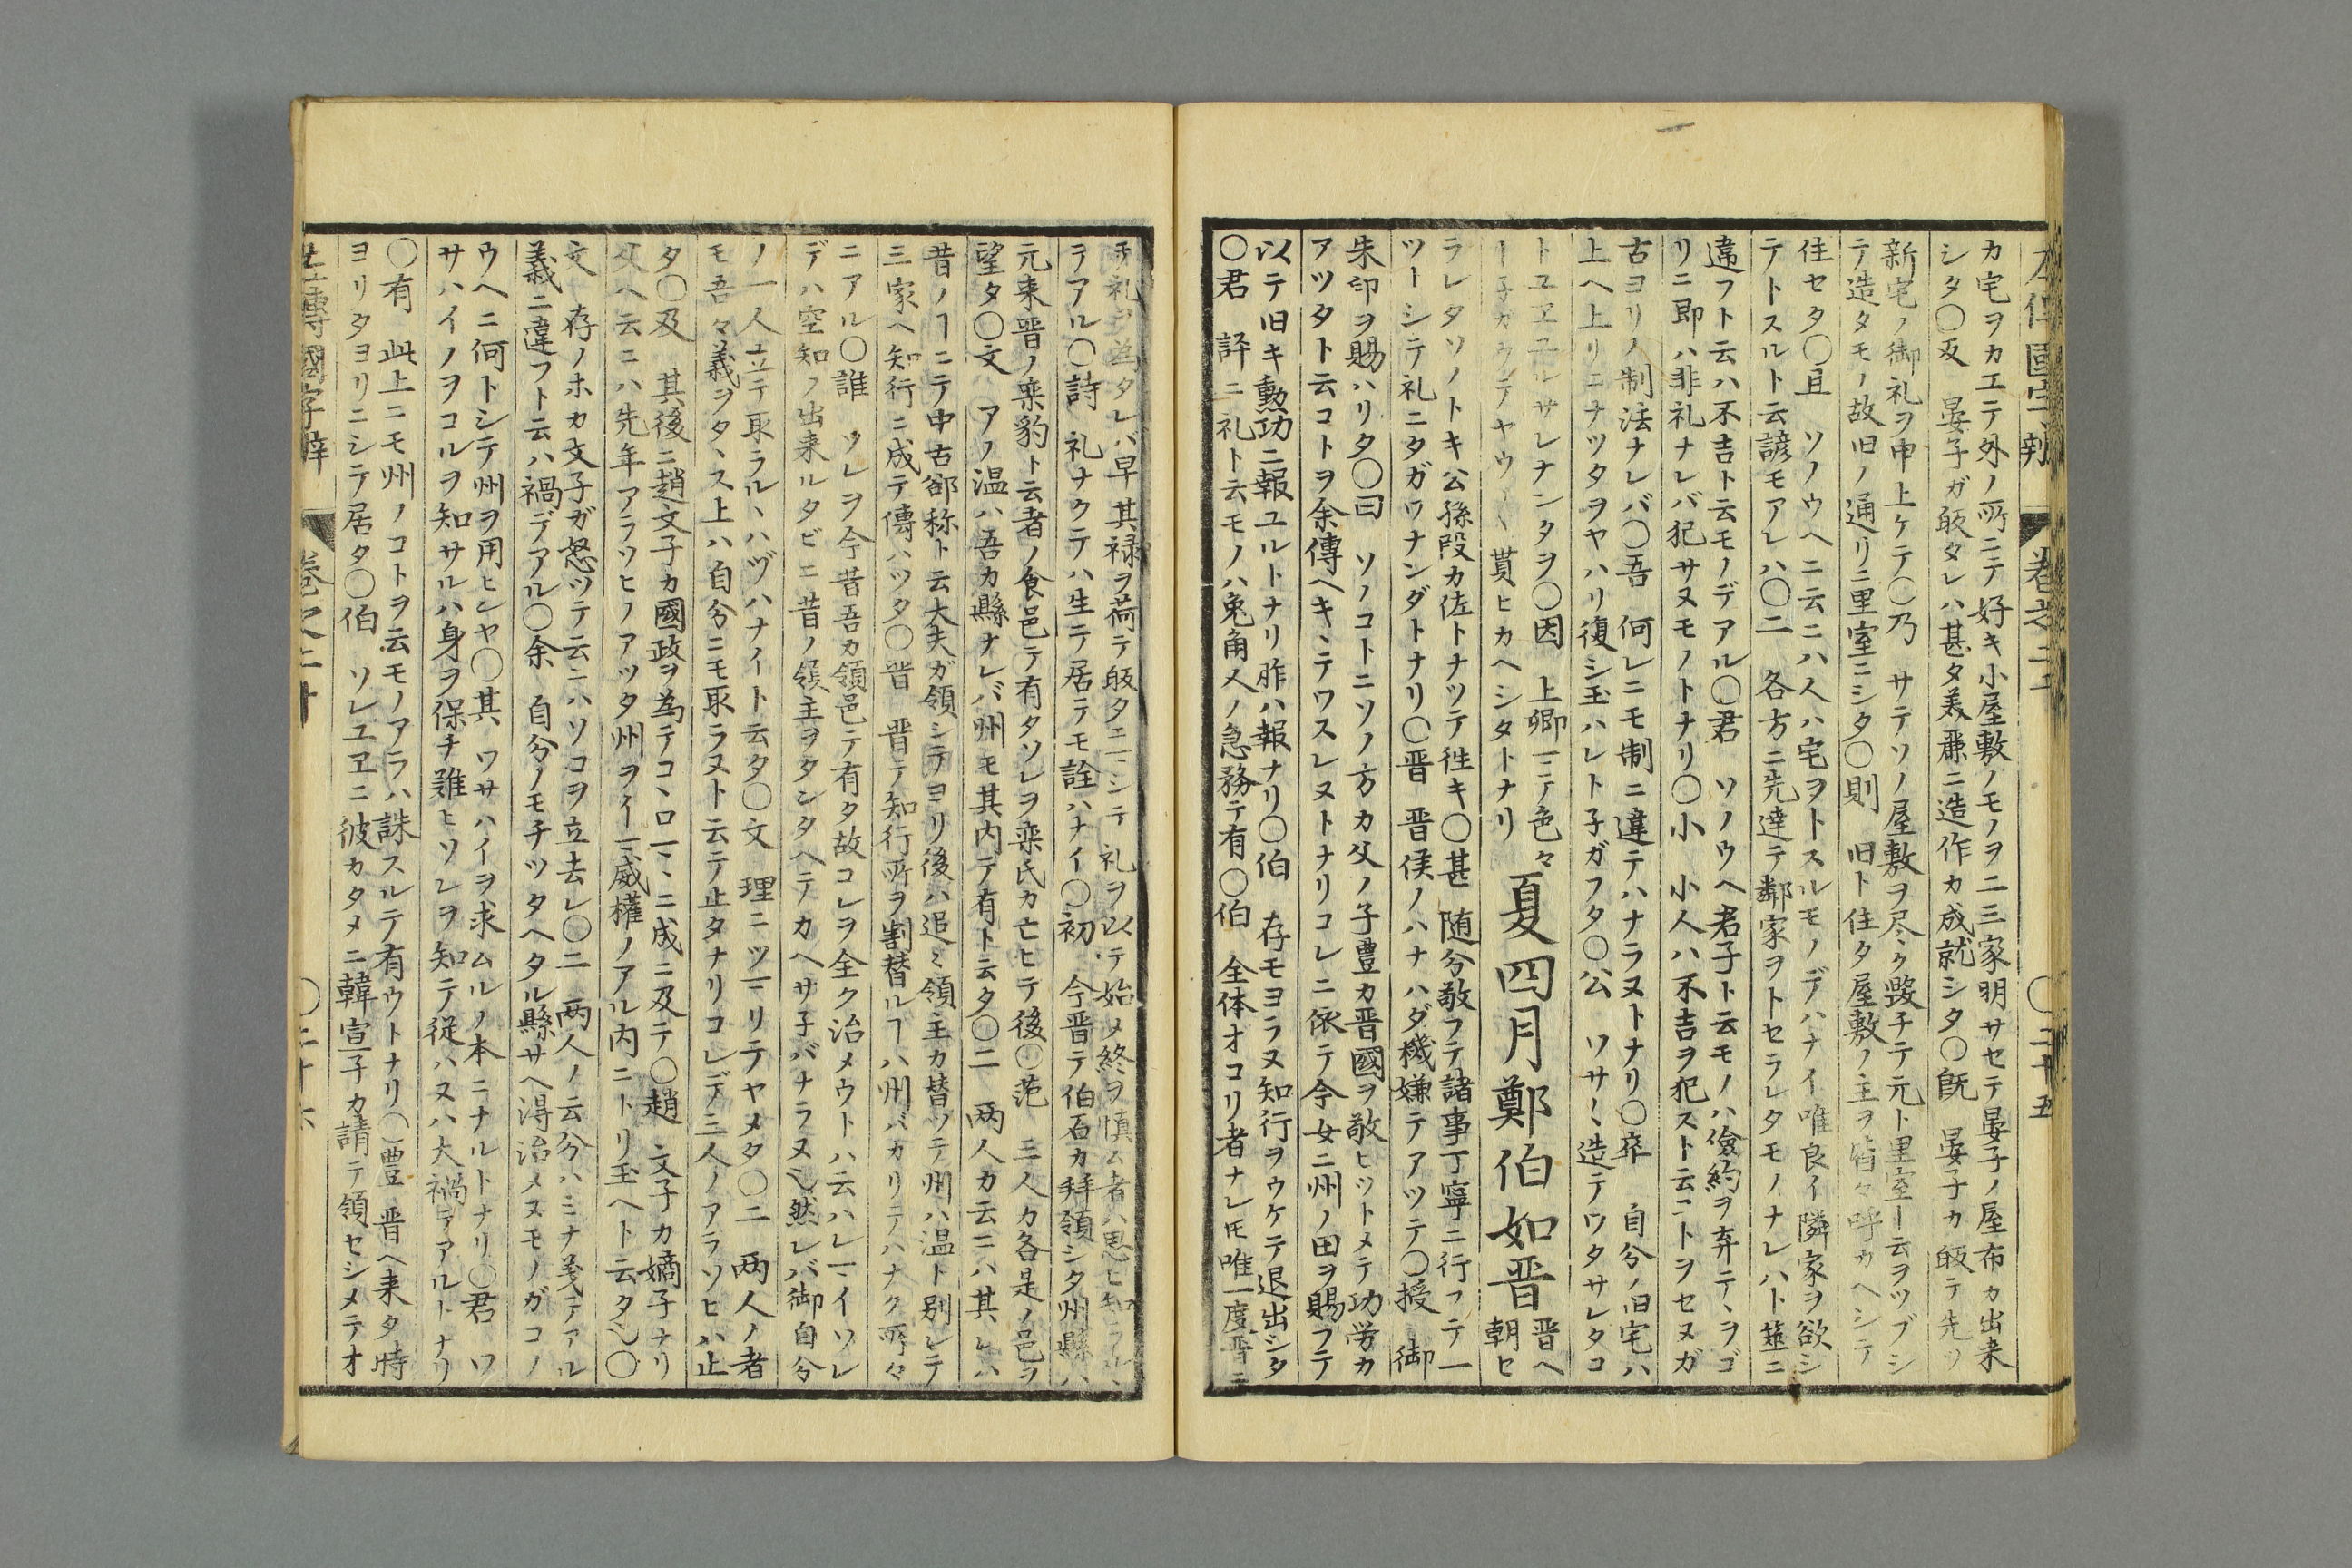 左傳國字辯 卷之二十 〇二十五
カ宅ヲカエテ外ノ所ニテ好キ小屋敷ノモノヲ二三家明サセテ晏子ノ屋布カ出来
シタ〇及 晏子ガ皈タレハ甚タ美麗ニ造作カ成就シタ〇既 晏子カ皈テ先ツ
新宅ノ御礼ヲ申上ケテ〇乃 サテソノ屋敷ヲ尽ク毀チテ元ト里室ト云ヲツブシ
テ造タモノ故旧ノ通リニ里室ニシタ〇則 旧ト住タ屋敷ノ主ヲ皆々呼カヘシテ
住セタ〇且 ソノウヘニ云ニハ人ハ宅ヲトスルモノデハナイ唯良イ隣家ヲ欲シ
テトスルト云諺モアレハ〇二 各方ニ先達テ鄰家ヲトセラレタモノナレハト筮ニ
違フト云ハ不吉ト云モノデアル〇君 ソノウヘ君子ト云モノハ儉約ヲ弃テヽヲゴ
リニ即ハ非礼ナレバ犯サヌモノトナリ〇小 小人ハ不吉ヲ犯スト云ヿヲセヌガ
古ヨリノ制法ナレバ〇吾 何レニモ制ニ違テハナラヌトナリ〇卒 自分ノ旧宅ハ
上ヘ上リニナツタヲヤハリ復シ玉ハレト子ガフタ〇公 ワサ〱造テワタサレタコ
トユヱユルサレナンタヲ〇因 上卿ニテ色々
ト子カウテヤウ〱貰ヒカヘシタトナリ
夏四月鄭伯如晋 晋ヘ
朝セ
ラレタソノトキ公孫段カ佐トナツテ徃キ〇甚 随分敬フテ諸事丁寧ニ行フテ一
ツトシテ礼ニタガワナンダトナリ〇晋 晋侯ノハナハダ機嫌テアツテ〇授 御
朱印ヲ賜ハリタ〇曰 ソノコトニソノ方カ父ノ子豊カ晋國ヲ敬ヒツトメテ功労カ
アツタト云コトヲ余傳ヘキヽテワスレヌトナリコレニ依テ今女ニ州ノ田ヲ賜フテ
以テ旧キ勲功ニ報ユルトナリ胙ハ報ナリ〇伯 存モヨラヌ知行ヲウケテ退出シタ
〇君 評ニ礼ト云モノハ兎角人ノ急務テ有〇伯 全体オコリ者ナレ𪜈唯一度晋ニ
テ礼ヲ為タレバ早其禄ヲ荷テ皈タニシテ礼ヲ以テ始メ終ヲ慎ム者ハ思ヒ知ラルヽ
テアル〇詩 礼ナクテハ生テ居テモ詮ハナイ〇初 今晋テ伯石カ拜領シタ州縣ハ
元来晋ノ欒豹ト云者ノ食邑テ有タソレヲ欒氏カ亡ヒテ後〇范 三人カ各是ノ邑ヲ
望タ〇文 アノ温ハ吾カ縣ナレバ州モ其内テ有ト云タ〇二 两人カ云ニハ其レハ
昔ノヿニテ中古郤称ト云大夫ガ領シテヨリ後ハ追々領主カ替ツテ州ハ温ト别レテ
三家ヘ知行ニ成テ傳ハツタ〇晋 晋テ知行所ヲ割替ルヿハ州バカリテハナク所々
ニアル〇誰 ソレヲ今昔吾カ領邑テ有タ故コレヲ全ク治メウトハ云ハレヿイソレ
デハ空知ノ出来ルタビニ昔ノ領主ヲタンタヘテカヘサ子バナラヌ也然レバ御自分
ノ一人立テ取ラルヽハヅハナイト云タ〇文 理ニツマリテヤメタ〇二 两人ノ者
モ吾々義ヲタヽス上ハ自分ニモ取ラヌト云テ止タナリコレデ三人ノアラソヒハ止
タ〇及 其後ニ趙文子カ國政ヲ為テコヽロマヽニ成ニ及テ〇趙 文子カ嫡子ナリ
父ヘ云ニハ先年アラソヒノアツタ州ヲイマ威權ノアル内ニトリ玉ヘト云タ也〇
文 存ノホカ文子ガ怒ツテ云ニハソコヲ立去レ〇二 两人ノ云分ハミナ義テアル
義ニ違フト云ハ禍デアル〇余 自分ノモチツタヘタル縣サヘ得治メヌモノガコノ
ウヘニ何トシテ州ヲ用ヒンヤ〇其 ワサハイヲ求ムルノ本ニナルトナリ〇君 ワ
サハイノヲコルヲ知サルハ身ヲ保チ難ヒソレヲ知テ從ハヌハ大禍テアルトナリ
〇有 此上ニモ州ノコトヲ云モノアラハ誅スルテ有ウトナリ〇豐 晋ヘ来タ時
ヨリタヨリニシテ居タ〇伯 ソレユヱニ彼カタメニ韓宣子カ請テ領セシメテオ
左傳國字辯 卷之二十 〇二十六